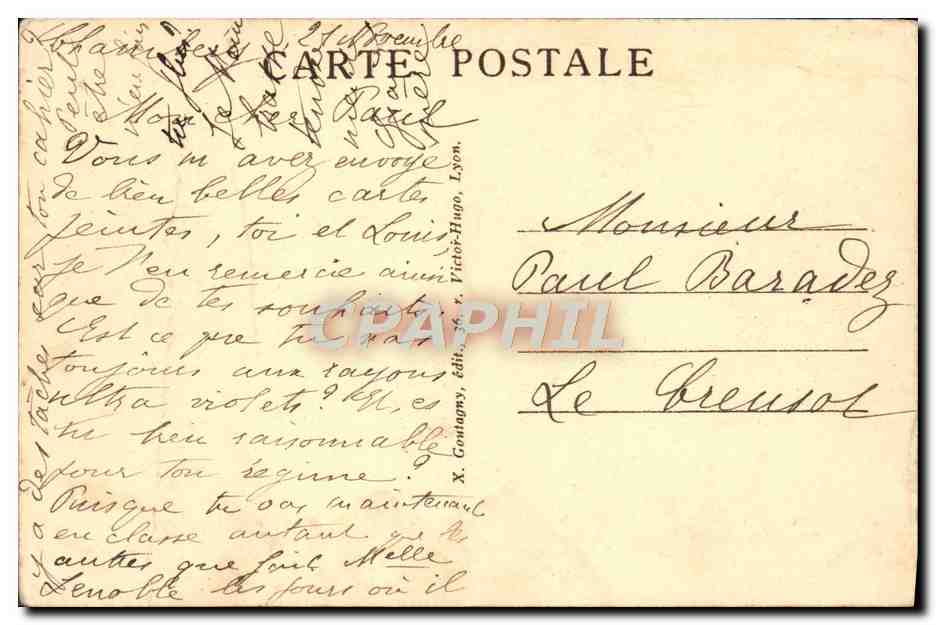 21 Novembre
CARTE POSTALE
Mon cher Paul
Vous m'avez envoyé
de bien belles cartes
peintes, toi et Louis,
je t'en remercie ainsi
que de tes souhaits.
Est ce que tu vas
toujours aux rayons
ultra violets? Et, es
tu bien raisonnable
pour ton régime?
Puisque tu vas maintenant
en classe autant que les
autres que fait Melle
Lenoble les jours où il
y a des taches sur ton cahier
Peut
être
plus
tendre
Monsieur
Paul Baradez
Le Creusot
X. Goutagny, édit., 36, r. Victor-Hugo, Lyon.
CPAPHIL